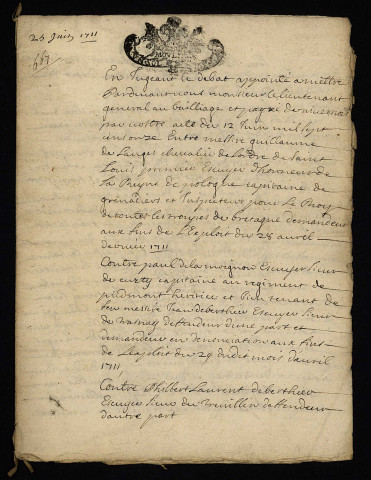 25 Juin 1711
En Jugeant le debat appointé a mettre
Pardevant nous monsieur le lieutenant
general au bailliage et pairie de nivernois
par nostre acte du 12 Juin mil sept
cens onze Entre messire guillaume
de Langes chevalier de Lordre de Saint
Louis premier Escuyer dhonneur de
La Reyne de pologne capitaine de
grenadiers et Inspecteur pour Le Roy
de toutes les trouppes de bretagne demandeur
aux fins de L'Exploit du 28 avril
dernier 1711
Contre paul de la moignon Escuyer Sieur
de capitaine au regiment de
piedmont heritier et bien tenant de
feu messire Jean deberthier Escuyer Sieur
de deffendeur dune part et
demandeur en denonciation aux fins
de Lexploit du 29 dudit mois davril
1711
Contre Philbert Laurent deberthier
Escuyer Sieur du deffendeur
dautre part